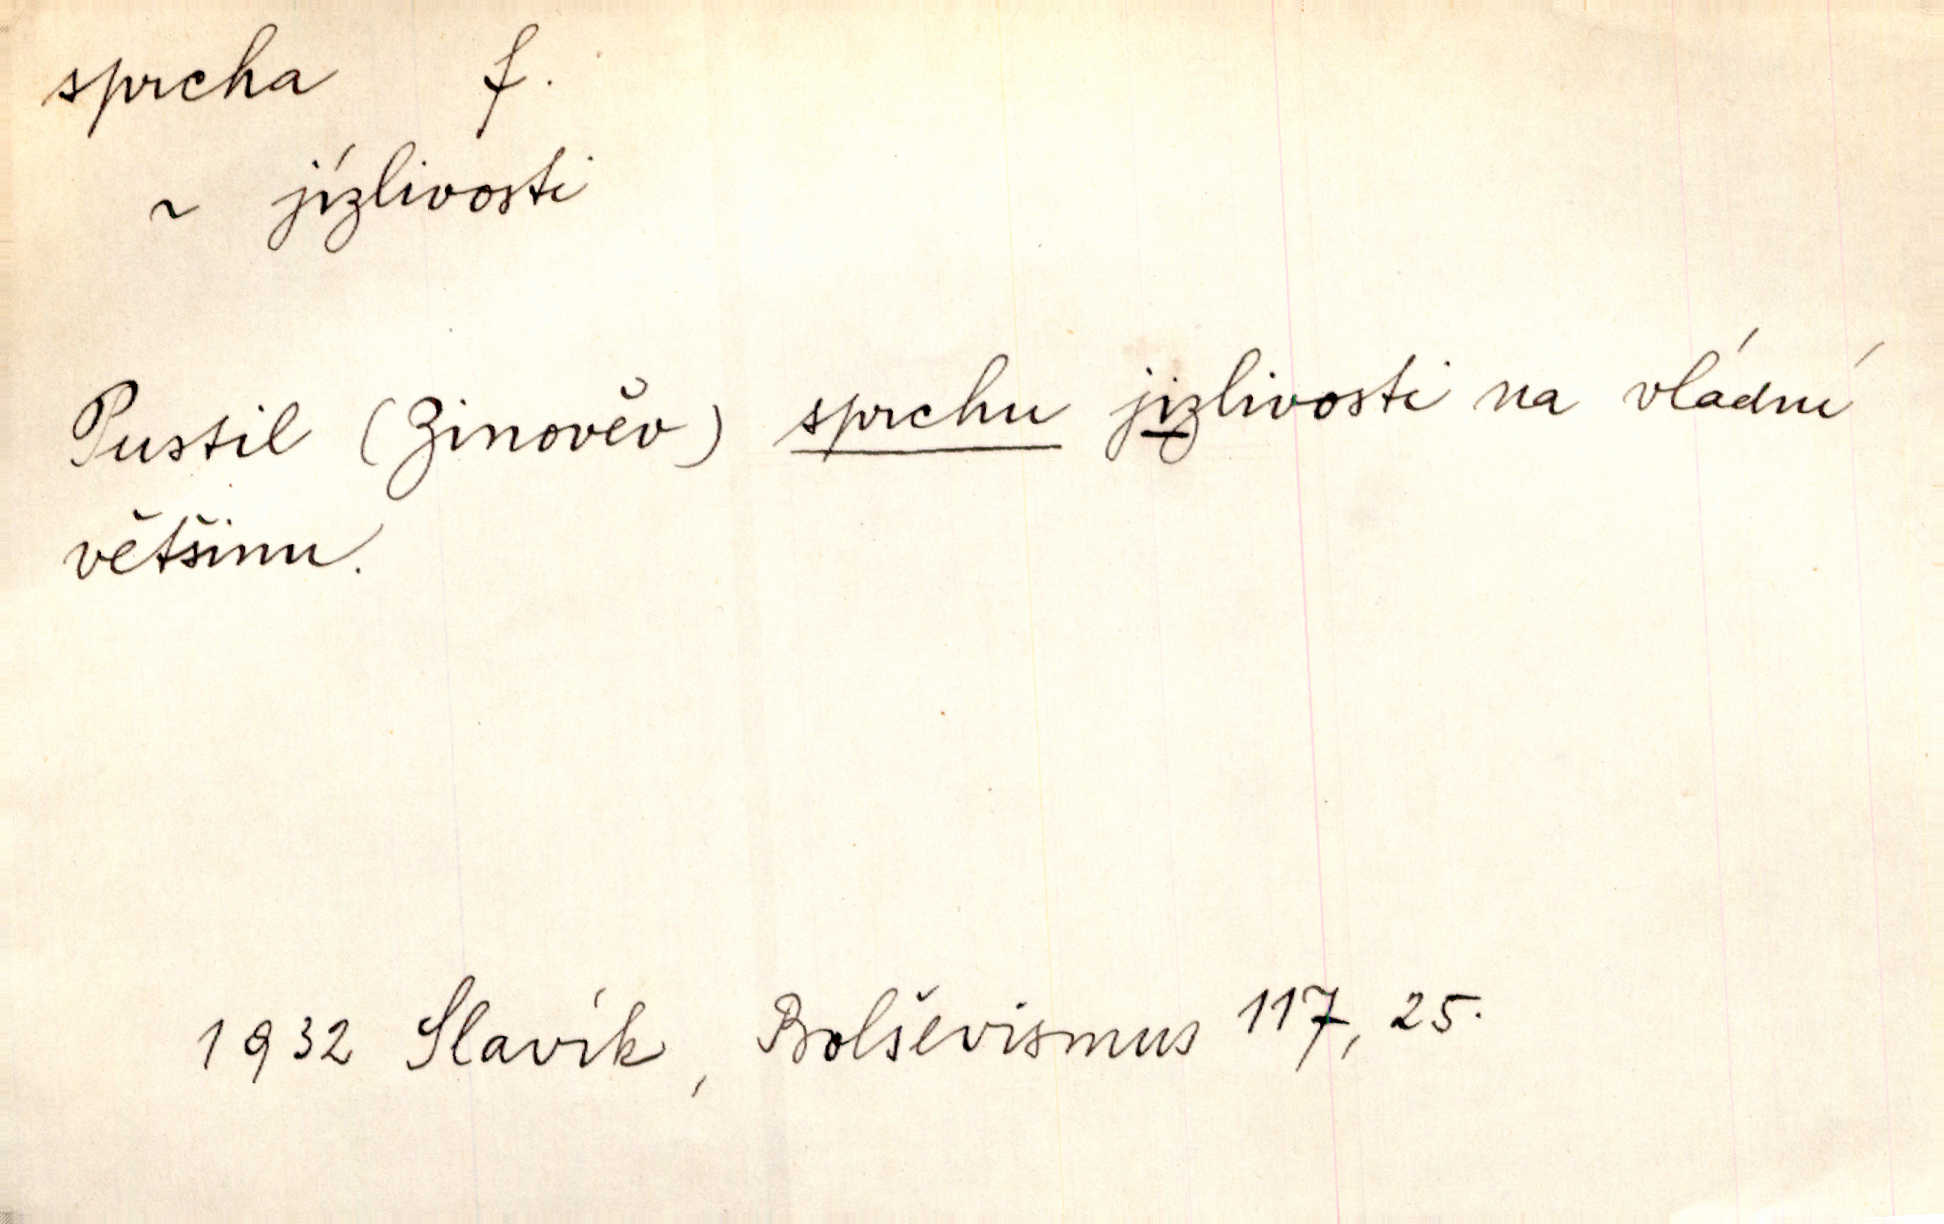 sprcha f.
~ jízlivosti
Pustil (Zinověv) sprchu jizlivosti na vládní
většinu.
1932 Slavík, Bolševismus 117, 25.